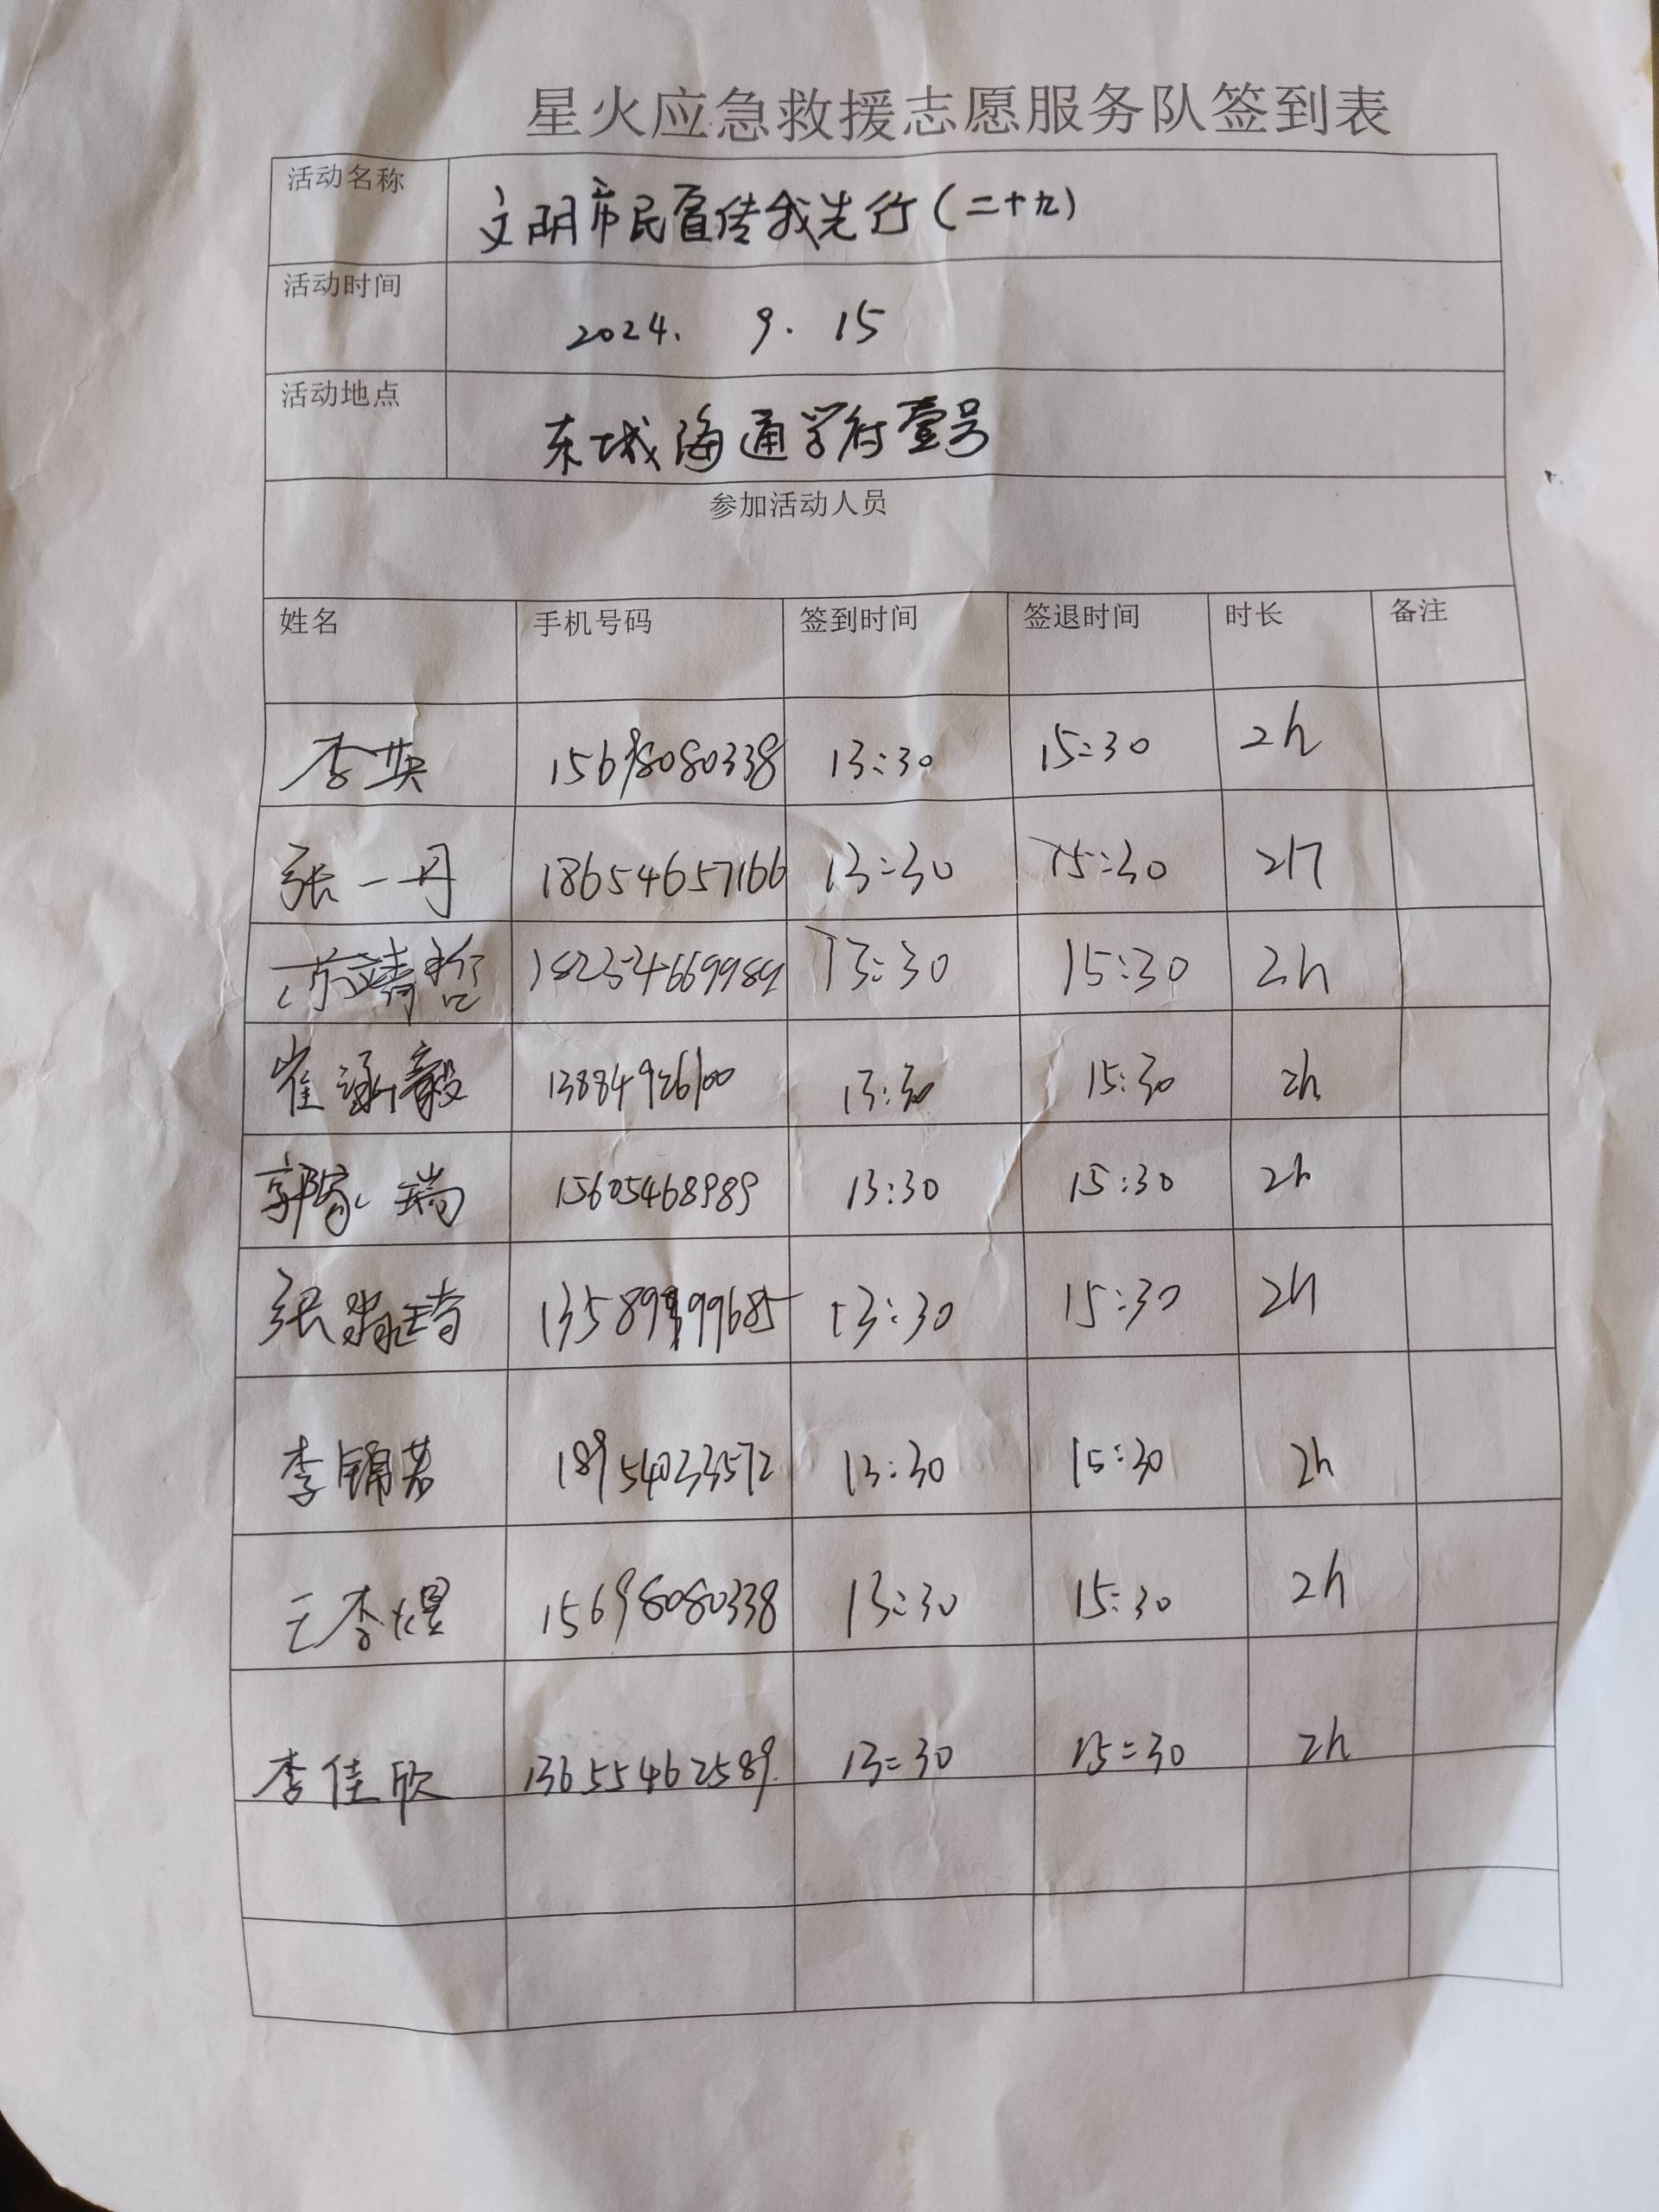 星火应急救援志愿服务队签到表
活动名称 文明市民宣传我先行(二十九)
活动时间 2024. 9. 15
活动地点 东城海通学府壹号
参加活动人员
姓名 手机号码 签到时间 签退时间 时长 备注
李英 15698080338 13:30 15:30 2h
张一丹 18654657166 13:30 15:30 2h
13:30 15:30 2h
崔涵毅 13884926100 13:30 15:30 2h
郭家瑞 15605468989 13:30 15:30 2h
张 13:30 15:30 2h
李锦 18954033572 13:30 15:30 2h
王李煜 15698080338 13:30 15:30 2h
李佳欣 13655462589. 13:30 15:30 2h